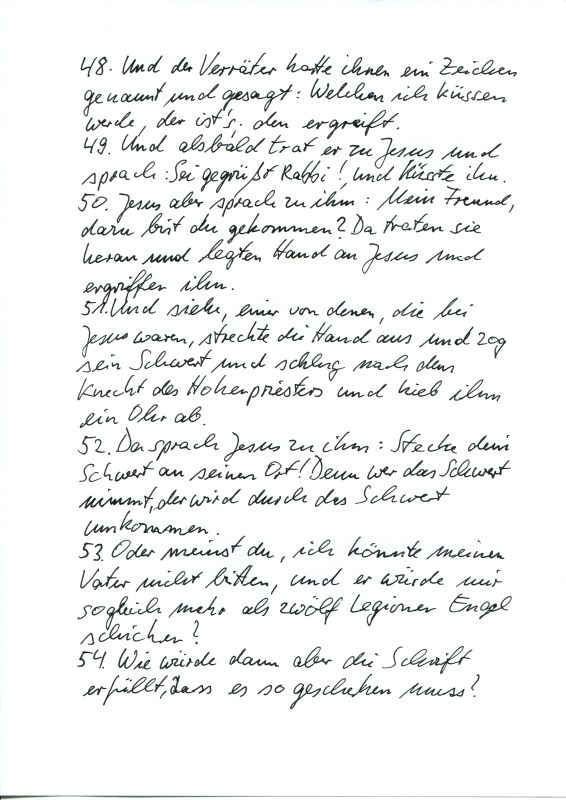 48. Und der Verräter hatte ihnen ein Zeichen
genannt und gesagt: Welchen ich küssen
werde, der ist's; den ergreift.
49. Und alsbald trat er zu Jesus und
sprach: Sei gegrüßt Rabbi!, und küsste ihn.
50. Jesus aber sprach zu ihm: Mein Freund,
dazu bist du gekommen? Da traten sie
heran und legten Hand an Jesus und
ergriffen ihn.
51. Und siehe, einer von denen, die bei
Jesus waren, streckte die Hand aus und zog
sein Schwert und schlug nach dem
Knecht des Hohenpriesters und hieb ihm
ein Ohr ab.
52. Da sprach Jesus zu ihm: Stecke dein
Schwert an seinen Ort! Denn wer das Schwert
nimmt, der wird durch das Schwert
umkommen.
53. Oder meinst du, ich könnte meinen
Vater nicht bitten, und er würde mir
sogleich mehr als zwölf Legionen Engel
schicken?
54. Wie würde dann aber die Schrift
erfüllt, dass es so geschehen muss?